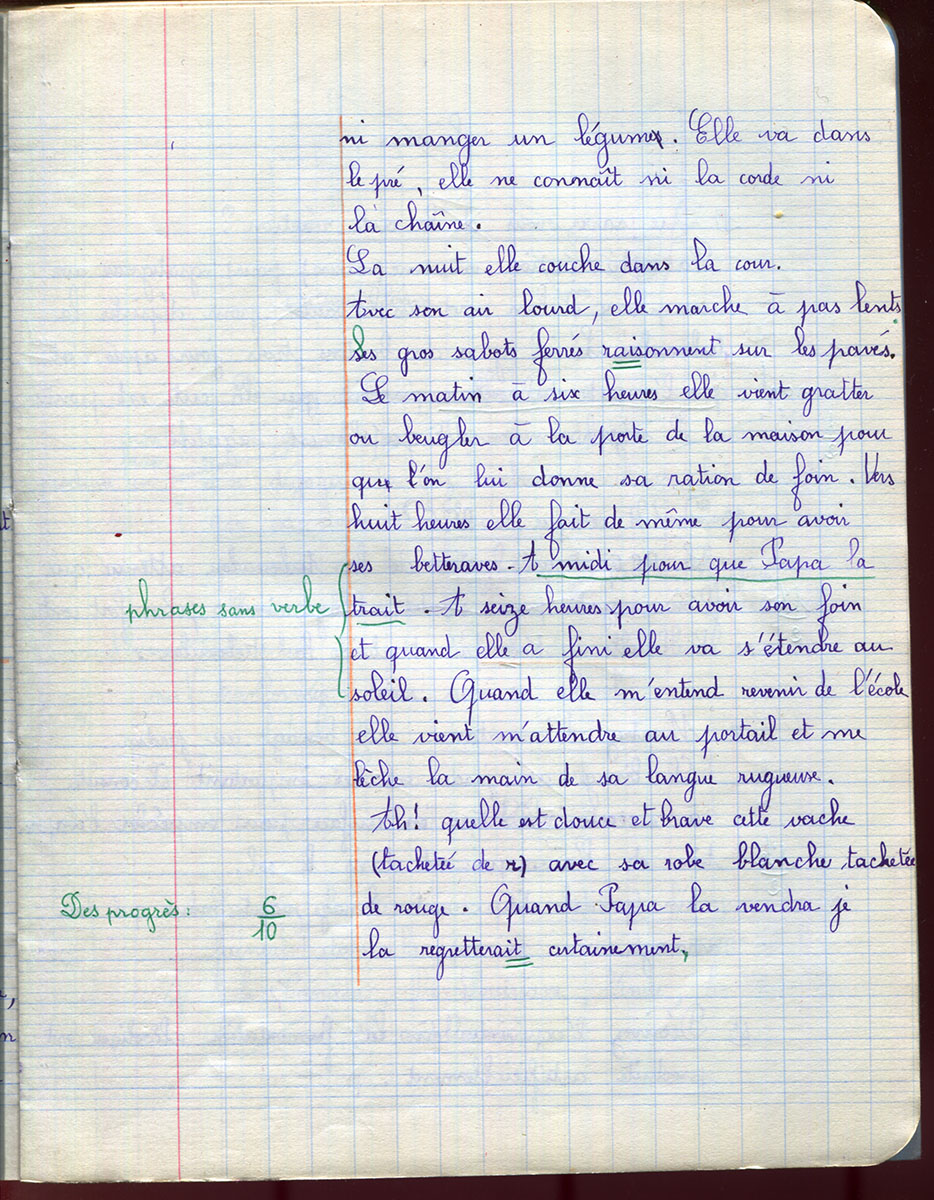 ni manger un légume. Elle va dans
le pré, elle ne connaît ni la corde ni
la chaîne.
La nuit elle couche dans la cour.
Avec son air lourd, elle marche à pas lents.
Ses gros sabots ferrés raisonnent sur les pavés.
Le matin à six heures elle vient gratter
ou beugler à la porte de la maison pour
que l'on lui donne sa ration de foin. Vers
huit heures elle fait de même pour avoir
ses betteraves. A midi pour que Papa la
phrases sans verbe
trait. A seize heures pour avoir son foin
et quand elle a fini elle va s'étendre au
soleil. Quand elle m'entend revenir de l'école
elle vient m'attendre au portail et me
lèche la main de sa langue rugueuse.
Ah! quelle est douce et brave cette vache
(tacheteé de r) avec sa robe blanche tachetée
Des progrès: 6/10
de rouge. Quand Papa la vendra je
la regretterait certainement,